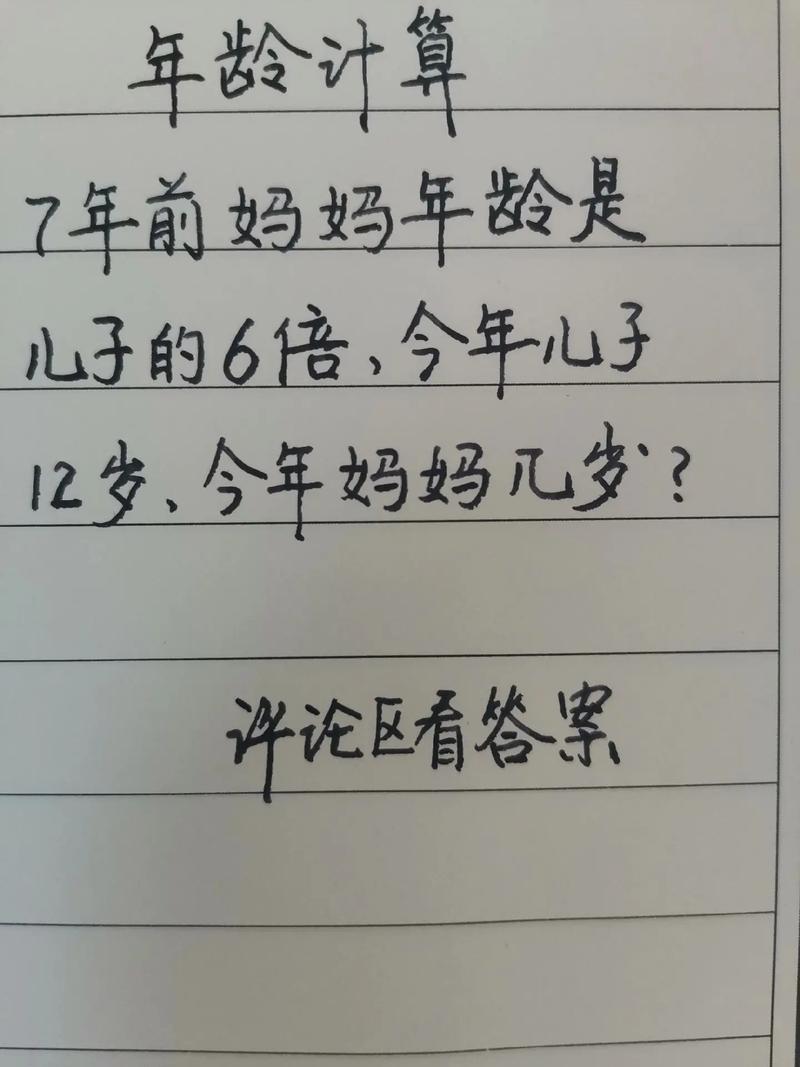 年龄计算
7年前妈妈年龄是
儿子的6倍、今年儿子
12岁、今年妈妈几岁?
评论区看答案